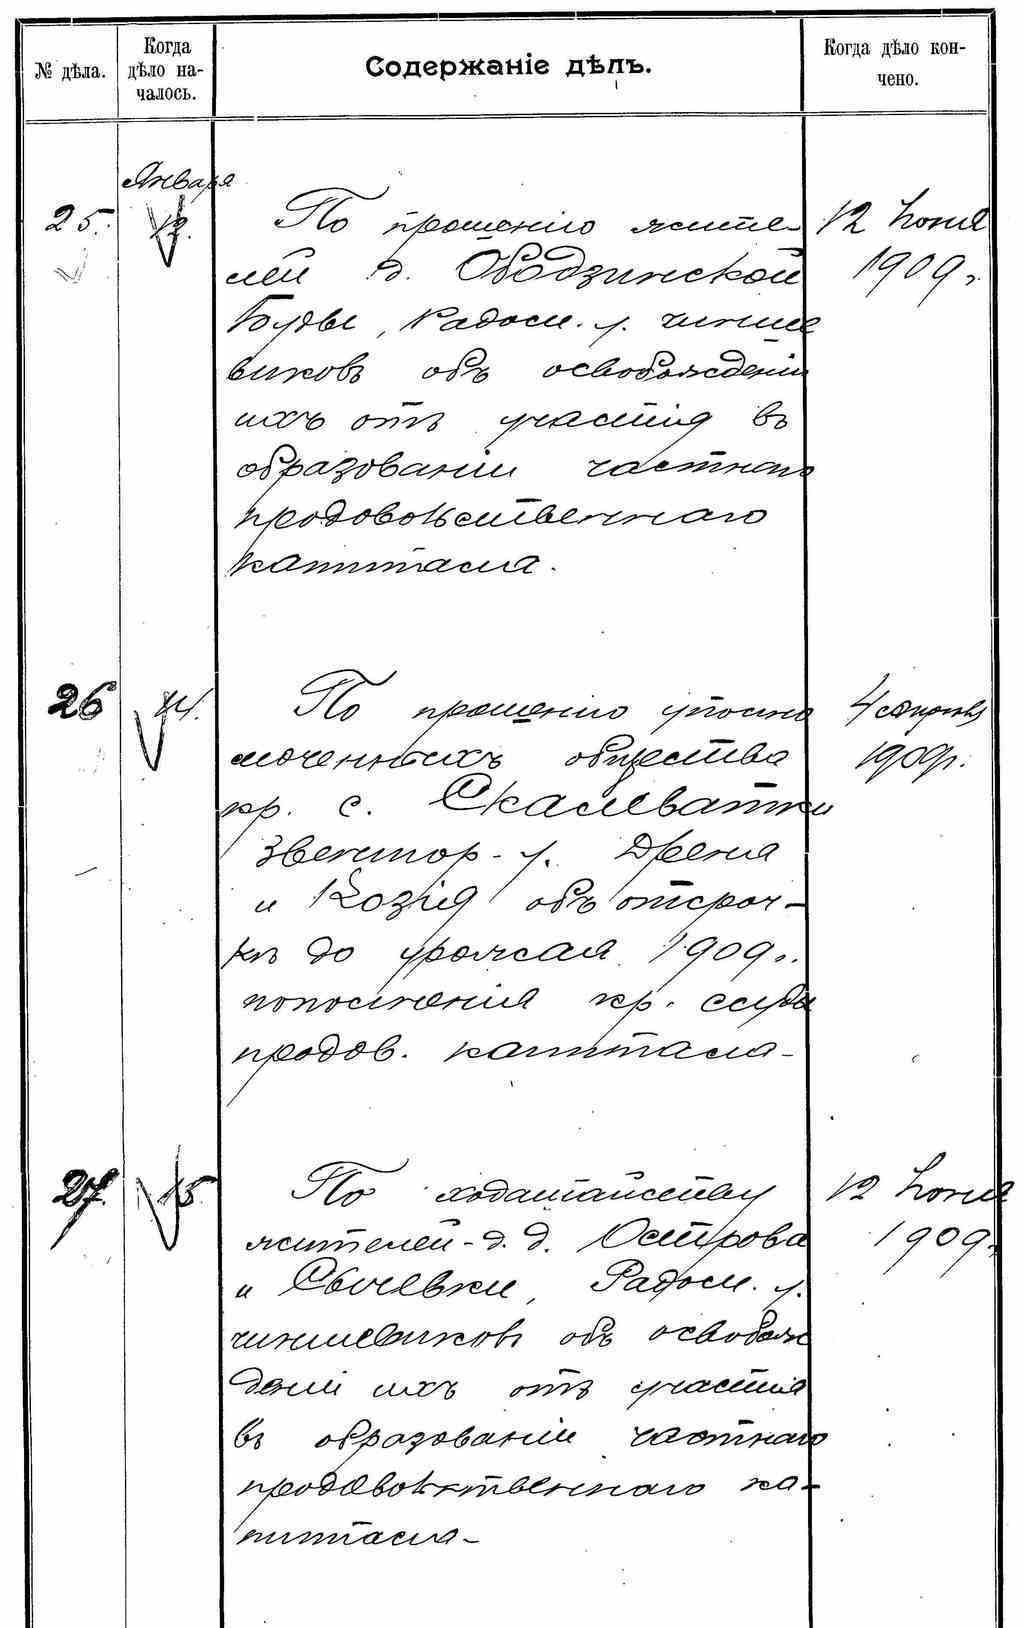 № дѣла.
Когда
дѣло на-
чалось.
Содержанiе дѣлъ.
Когда дѣло кон-
чено.
Января
25.
12.
По прошенiю жите-
лей д. Ободзинской
Гуты, Радом. у. чинше
виковъ объ освобожденiи
ихъ отъ участiя въ
образованiи частнаго
продовольственнаго
капитала.
12 Iюня
1909 г.
26
14.
По прошенiю уполно
моченныхъ общества
кр. с. Скалеватки
Звенигор. у.
и Козiя объ отсроч-
кѣ до урожая 1909 г.
пополненiя кр. ссуды
продов. капитала-
4 апрѣля
1909 г.
27.
15
По ходатайству
жителей д. д. Острова
и Сычевки, Радом. у.
чиншевиковъ объ освобож
денiи ихъ отъ участiя
въ образованiи частнаго
продовольственнаго ка-
питала-
12 Iюня
1909 г.